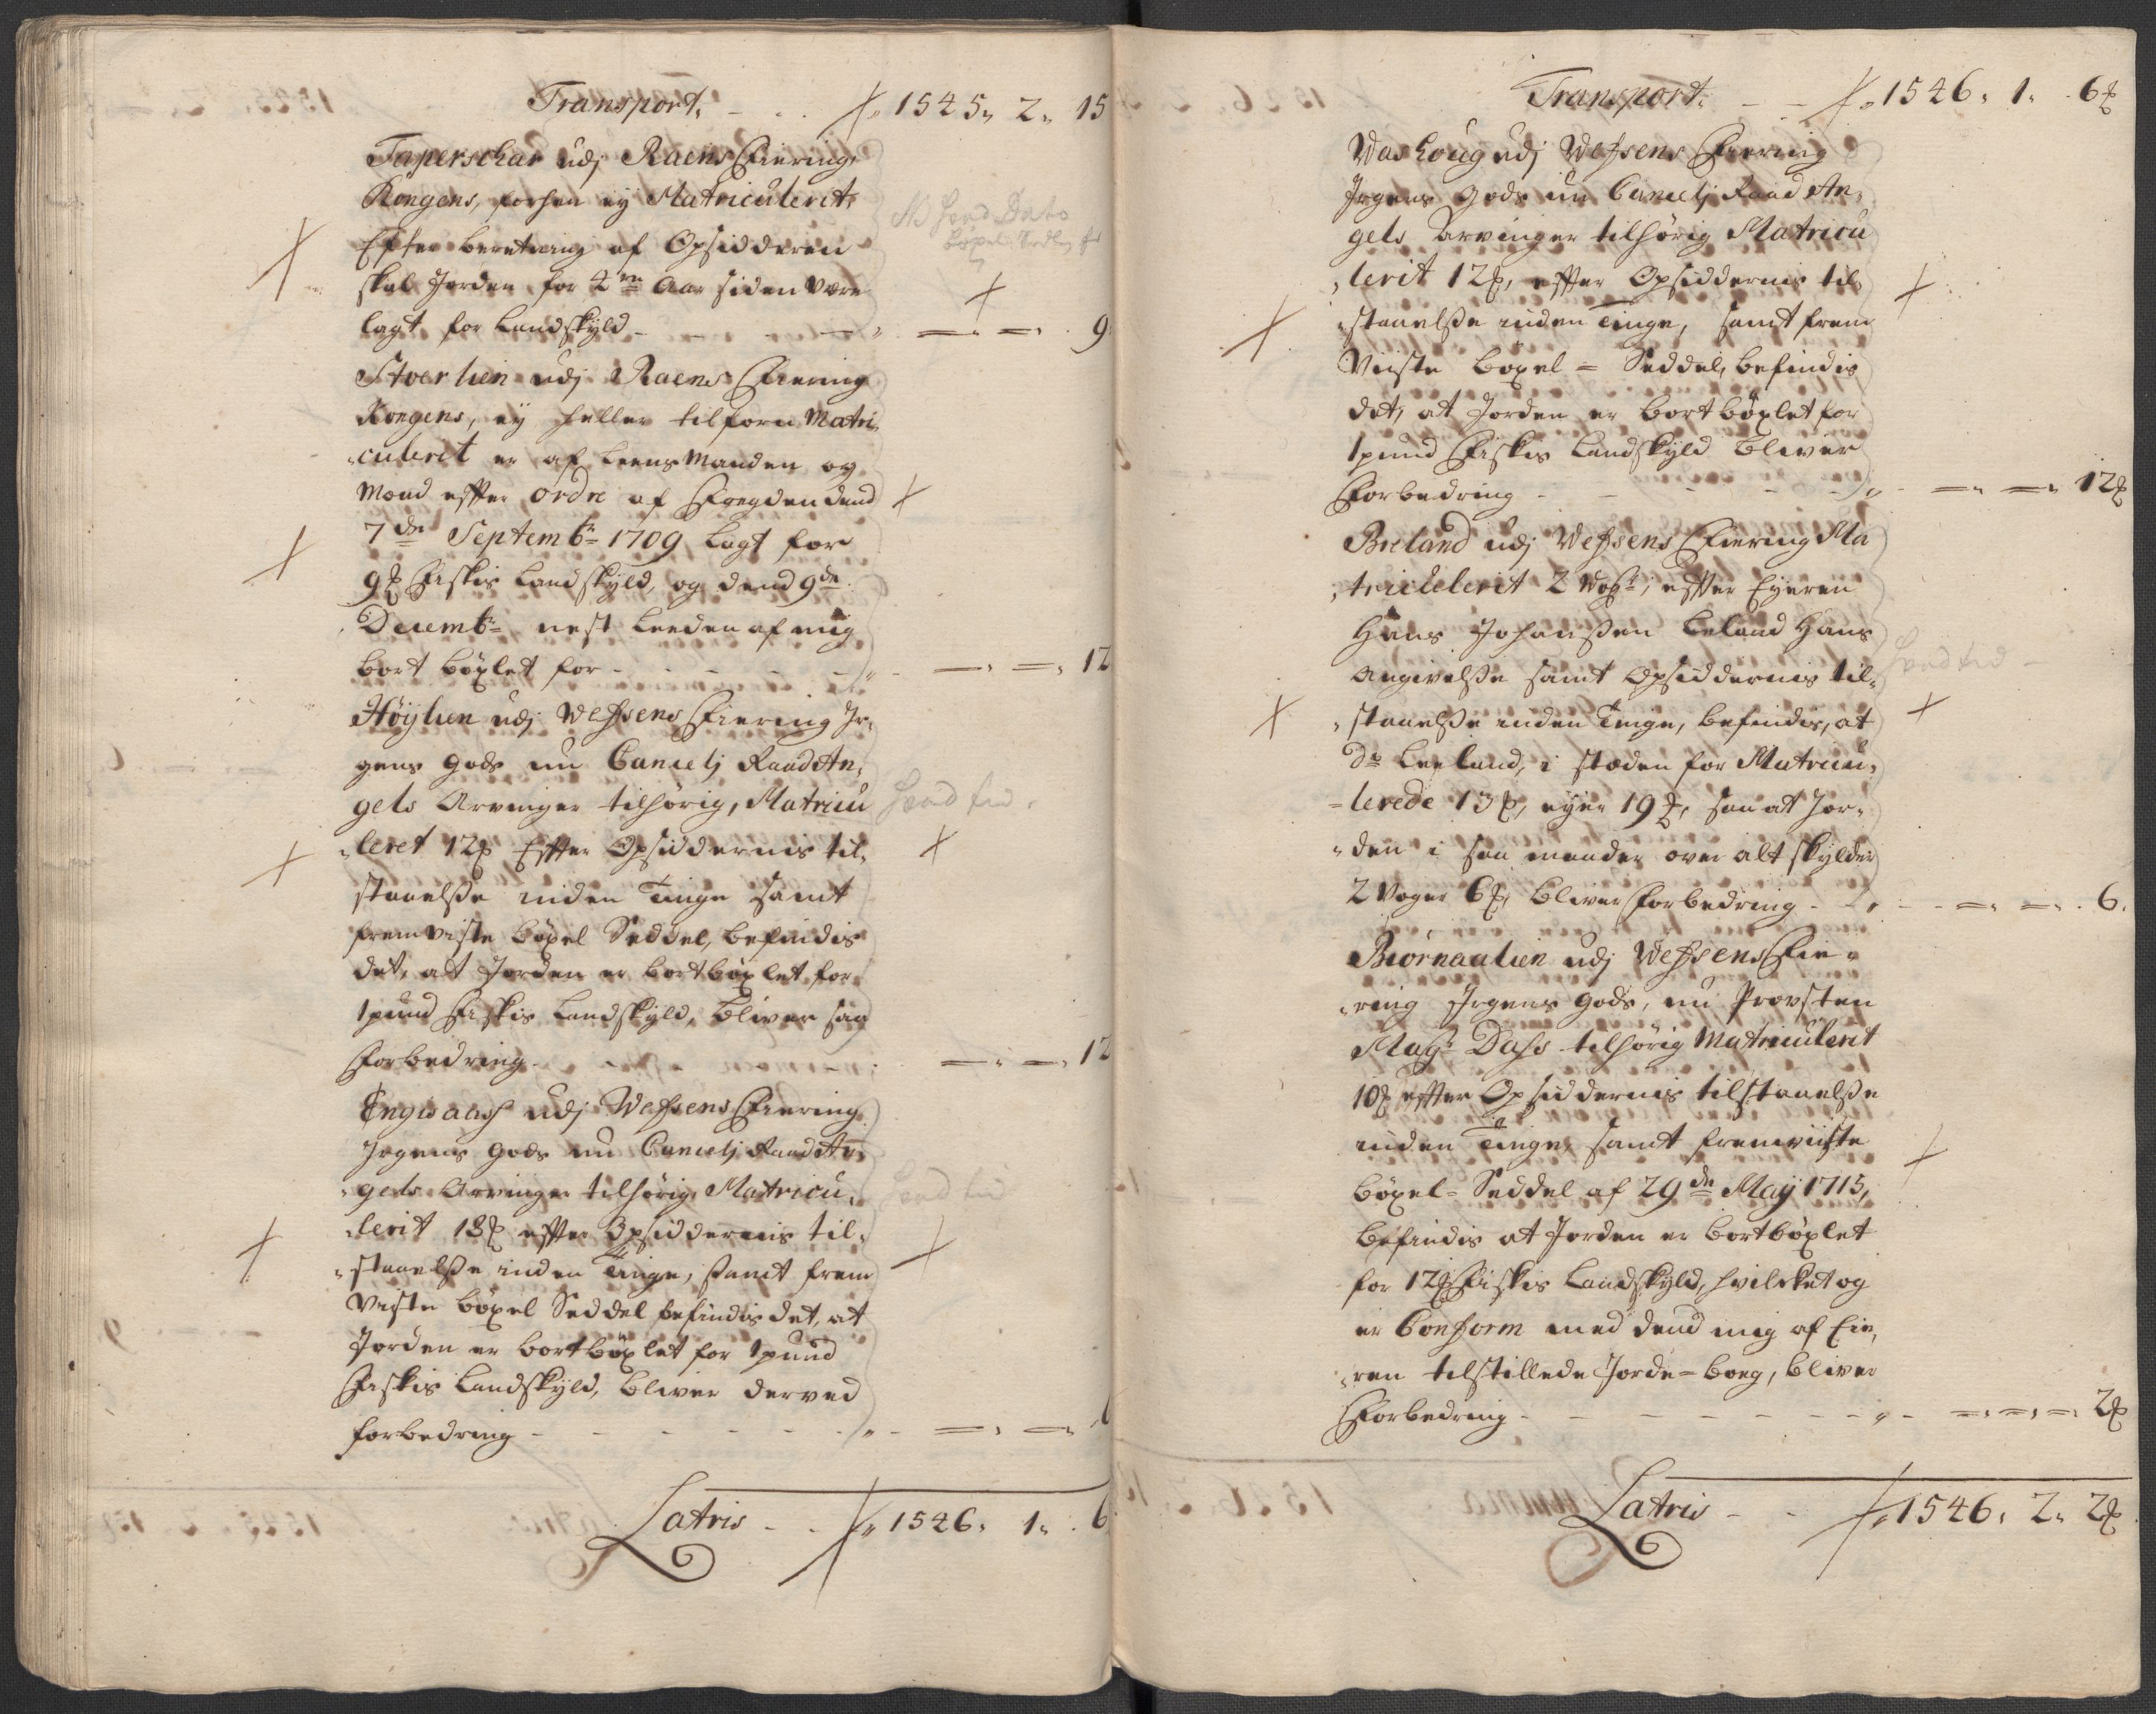 Transport, - . . 1545„ 2„ 15
Taperschar udj Raens Fiering
Kongens, forhen ey Matriculerit,
Efter beretning af Opsidderen
skal Jorden for 2de Aar siden være
lagt for Landskyld - — — 9
Stoerlien udj Raens Fiering
Kongens, ey heller tilforn Matri,
„culerit er af Leensmanden og
Mænd effter ordre af Fogden dend
7de Septembr 1709 lagt for
9 Fiskis Landskyld, og dend 9de
Decembr nest leeden af mig
bort böxlet for - - - — — 12
Höylien udj Wefsens Fiering Jr,
gens gods nu Cancelj Raad An,
gels Arvinger tilhörig, Matricu
„leret 12 Effter Opsiddernis til,
staaelße inden Tinge samt
fremviste böxel Seddel, befindis
det, att Jorden er bortböxlet for
1 pund Fiskis Landskyld, bliver saa
Forbedring - — — 12
udj Wefsens Fiering
Jrgens gods nu Cancelj Raad An,
„gels Arvinger tilhörig Matricu,
„lerit 18 effter Opsiddernis til,
„staaelße inden Tinge, samt frem
viste böxel Seddel befindis det, at
Jorden er bortböxlet for 1 pund
Fiskis Landskyld, bliver derved
forbedring - - - — —
Latris - . . 1546„ 1„ 6
Transport, - - 1546„ 1„ 6
udj Wefsens Fiering
Jrgens gods nu Cancelj Raad An,
gels Arvinger tilhörig Matricu
„lerit 12, effter Opsiddernis til,
„staaelße inden Tinge, samt frem
Viiste böxel = Seddel, befindis
det, at Jorden er bortböxlet for
1 pund Fiskis Landskyld bliver
Forbedring - - - — — 12
Breland udj Wefsens Fiering Ma
„triculerit 2 Wog, effter Eyeren
Hans Johanßen Leland Hans
Angivelße samt Opsiddernis til,
„staaelße inden Tinge, befindis, at
do Leeland, i stæden for Matricu,
„lerede 13, eyer 19, saa at Jor,
„den i saa maader over alt skylder
2 Woger 6, bliver Forbedring - — — 6
Biörnaalien udj Wefsens Fie,
„ring Jrgens gods, nu Provsten
Magr Dass tilhörig Matriculerit
10 effter Opsiddernis tilstaaelße
inden Tinge, samt fremviiste
böxel = Seddel af 29de May 1715,
befindis at Jorden er bortböxlet
for 12 Fiskis Landskyld, hvilcket og
er Conform med dend mig af Eie,
„ren tilstillede Jorde = bog, bliver
Forbedring - - - — — 2
Latris - - 1546„ 2„ 2